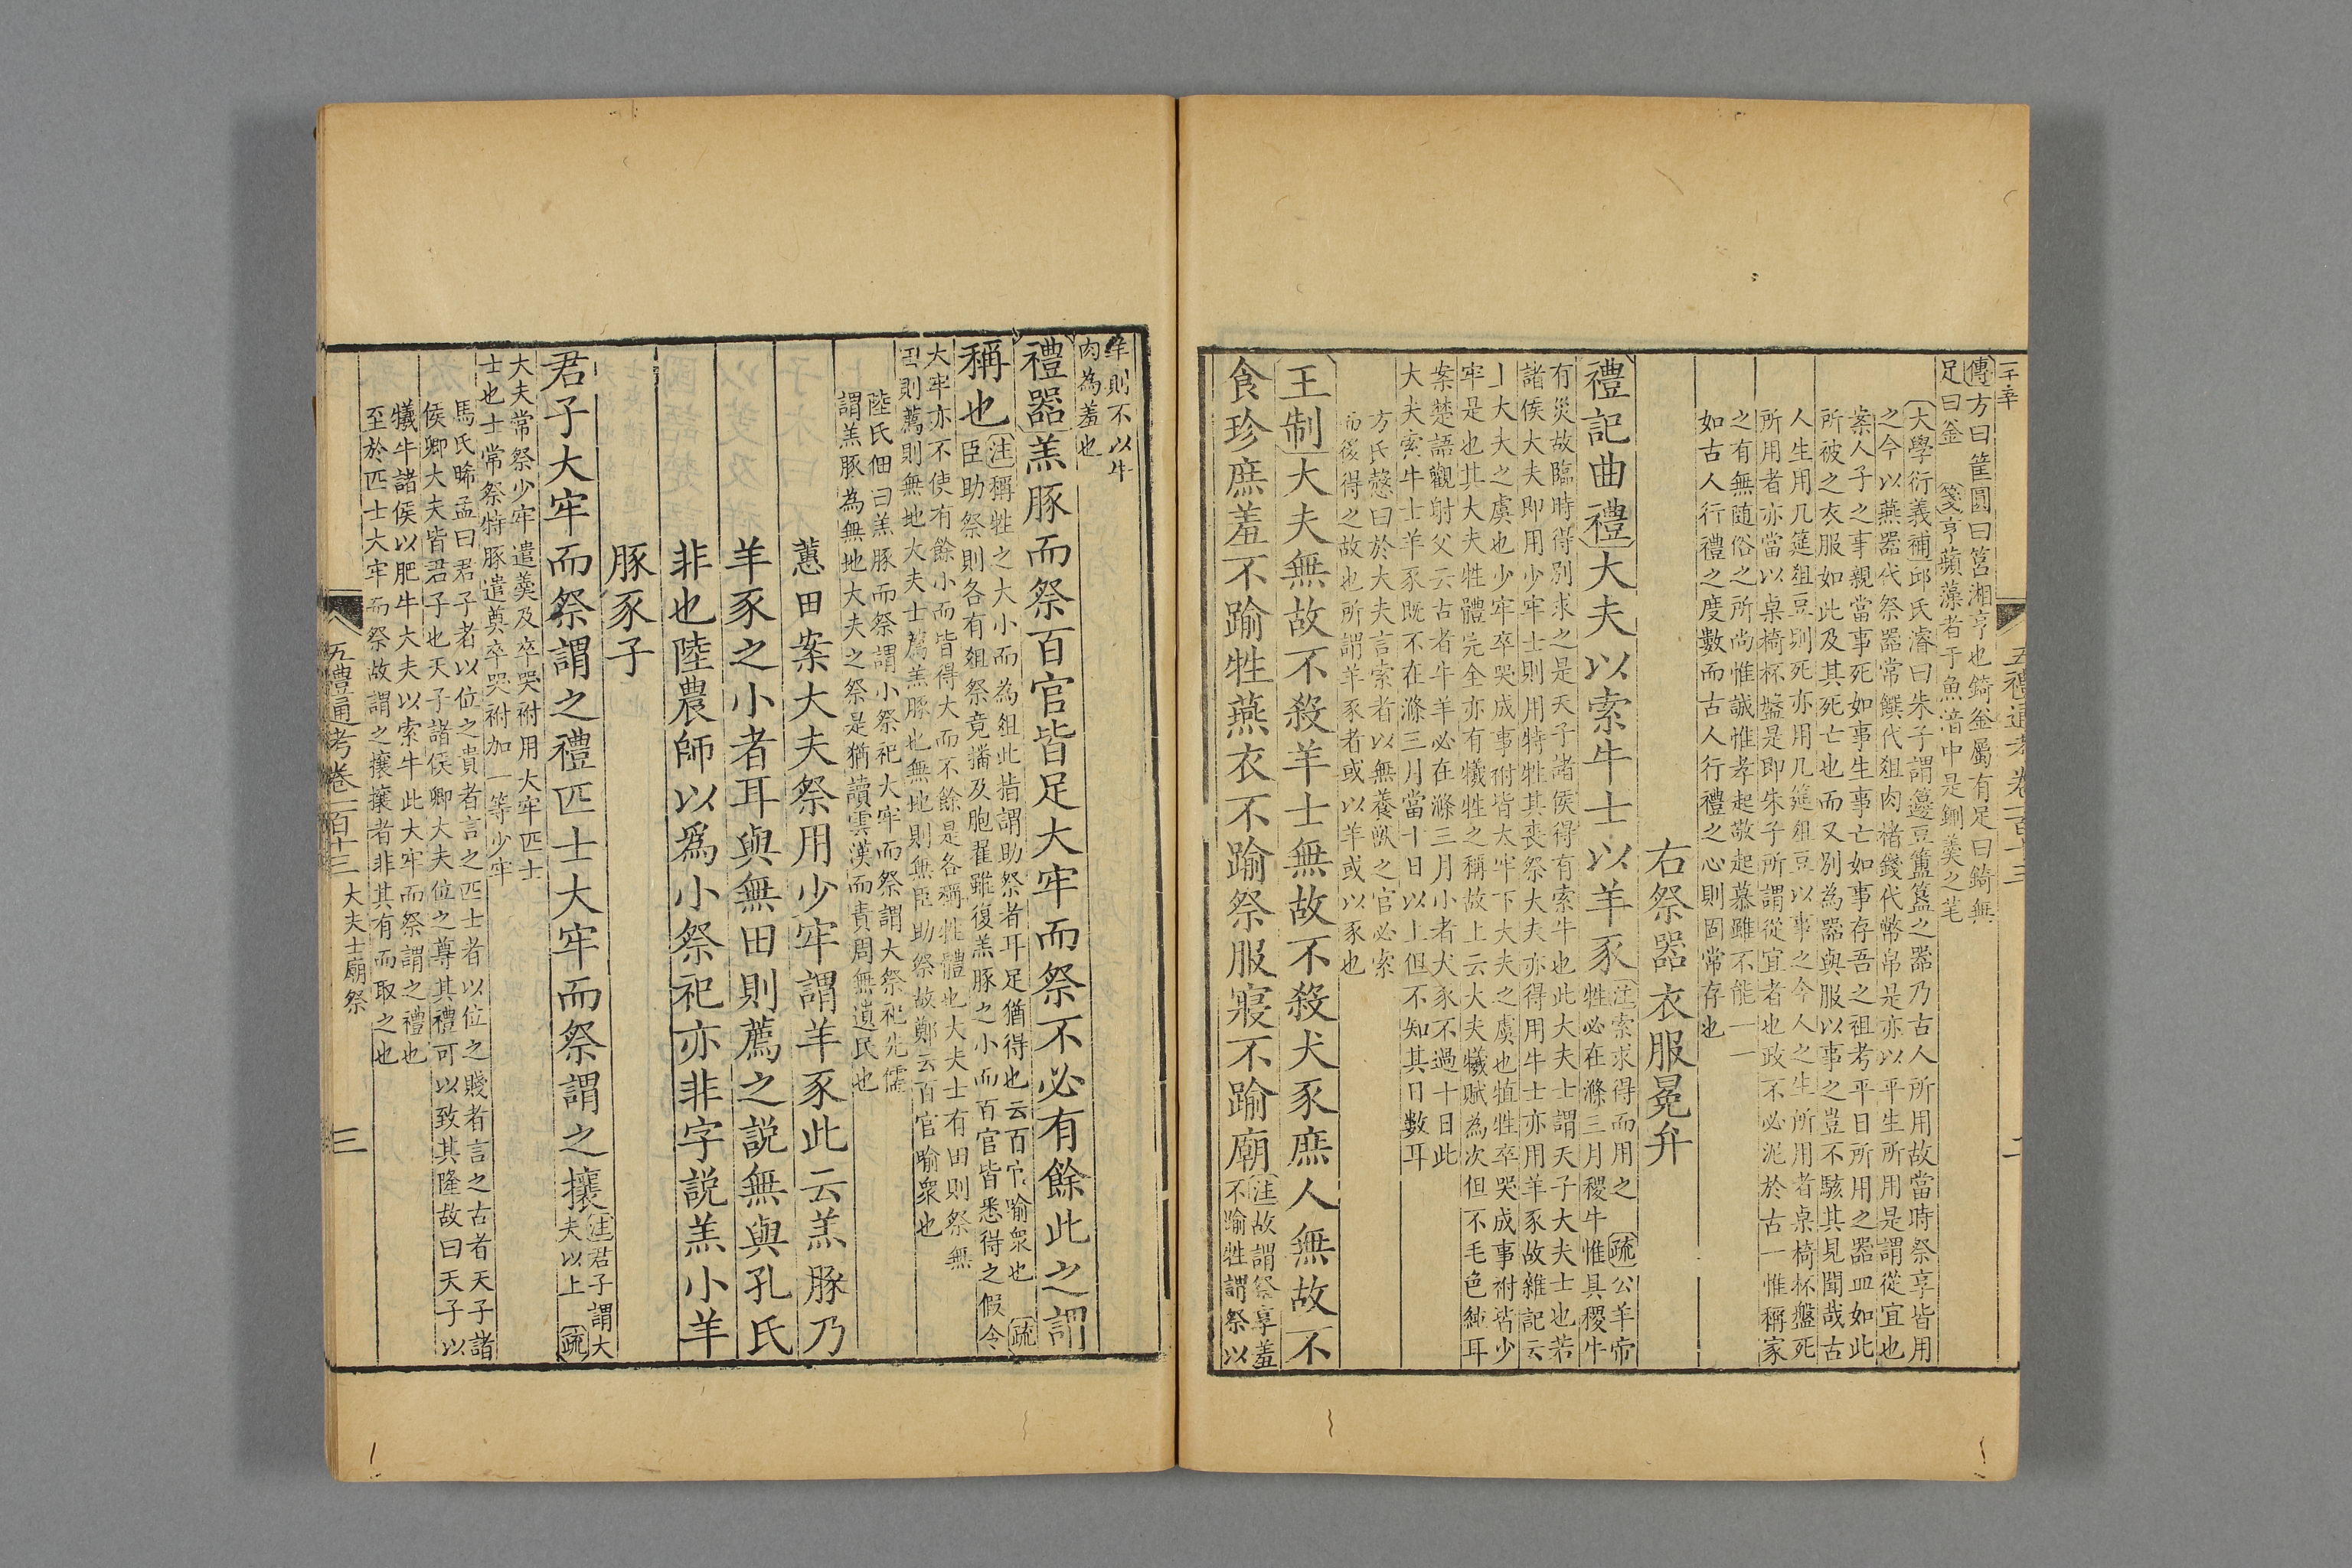 傳方曰筐圓曰筥湘亨也錡釜屬有足曰錡無
足曰釜　箋亨蘋藻者于魚湆中是鉶羹之芼
大學衍義補邱氏濬曰朱子謂籩豆簠簋之器乃古人所用故當時祭享皆用
之今以燕器代祭器常饌代俎肉楮錢代幣帛是亦以平生所用是謂從宜也
案人子之事親當事死如事生事亡如事存吾之祖考平日所用之器皿如此
所被之衣服如此及其死亡也而又別為器與服以事之豈不駭其見聞哉古
人生用几筵俎豆則死亦用几筵俎豆以事之今人之生所用者桌椅杯盤死
所用者亦當以桌椅杯盤是即朱子所謂從宜者也政不必泥於古一惟稱家
之有無随俗之所尚惟誠惟孝起敬起慕雖不能一一
如古人行禮之度數而古人行禮之心則固常存也
右祭器衣服冕弁
禮記曲禮大夫以索牛士以羊豕
注索求得而用之　疏公羊帝
牲必在滌三月稷牛惟具稷牛
有災故臨時得別求之是天子諸侯得有索牛也此大夫士謂天子大夫士也若
諸侯大夫即用少牢士則用特牲其喪祭大夫亦得用牛士亦用羊豕故雜記云
上大夫之虞也少牢卒哭成事祔皆太牢下大夫之虞也犆牲卒哭成事祔皆少
牢是也其大夫牲體完全亦有犧牲之稱故上云大夫犧賦為次但不毛色純耳
案楚語觀射父云古者牛羊必在滌三月小者犬豕不過十日此
大夫索牛士羊豕既不在滌三月當十日以上但不知其日數耳
方氏慤曰於大夫言索者以無養獸之官必索
而後得之故也所謂羊豕者或以羊或以豕也
王制大夫無故不殺羊士無故不殺犬豕庶人無故不
食珍庶羞不踰牲燕衣不踰祭服寢不踰廟
注故謂祭享羞
不踰牲謂祭以
羊則不以牛
肉為羞也
禮器羔豚而祭百官皆足大牢而祭不必有餘此之謂
稱也
注稱牲之大小而為俎此指謂助祭者耳足猶得也云百官喻衆也　疏
臣助祭則各有俎祭竟播及胞翟雖復羔豚之小而百官皆悉得之假令
大牢亦不使有餘小而皆得大而不餘是各稱牲體也大夫士有田則祭無
田則薦薦則無地大夫士薦羔豚也無地則無臣助祭故鄭云百官喻衆也
陸氏佃曰羔豚而祭謂小祭祀大牢而祭謂大祭祀先儒
謂羔豚為無地大夫之祭是猶讀雲漢而責周無遺民也
蕙田案大夫祭用少牢謂羊豕此云羔豚乃
羊豕之小者耳與無田則薦之説無與孔氏
非也陸農師以爲小祭祀亦非字説羔小羊
豚豕子
君子大牢而祭謂之禮匹士大牢而祭謂之攘
注君子謂大
夫以上　疏
大夫常祭少牢遣奠及卒哭祔用大牢匹士
士也士常祭特豚遣奠卒哭祔加一等少牢
馬氏晞孟曰君子者以位之貴者言之匹士者以位之賤者言之古者天子諸
侯卿大夫皆君子也天子諸侯卿大夫位之尊其禮可以致其隆故曰天子以
犧牛諸侯以肥牛大夫以索牛此大牢而祭謂之禮也
至於匹士大牢而祭故謂之攘攘者非其有而取之也
五禮通考卷一百十三　大夫士廟祭　三